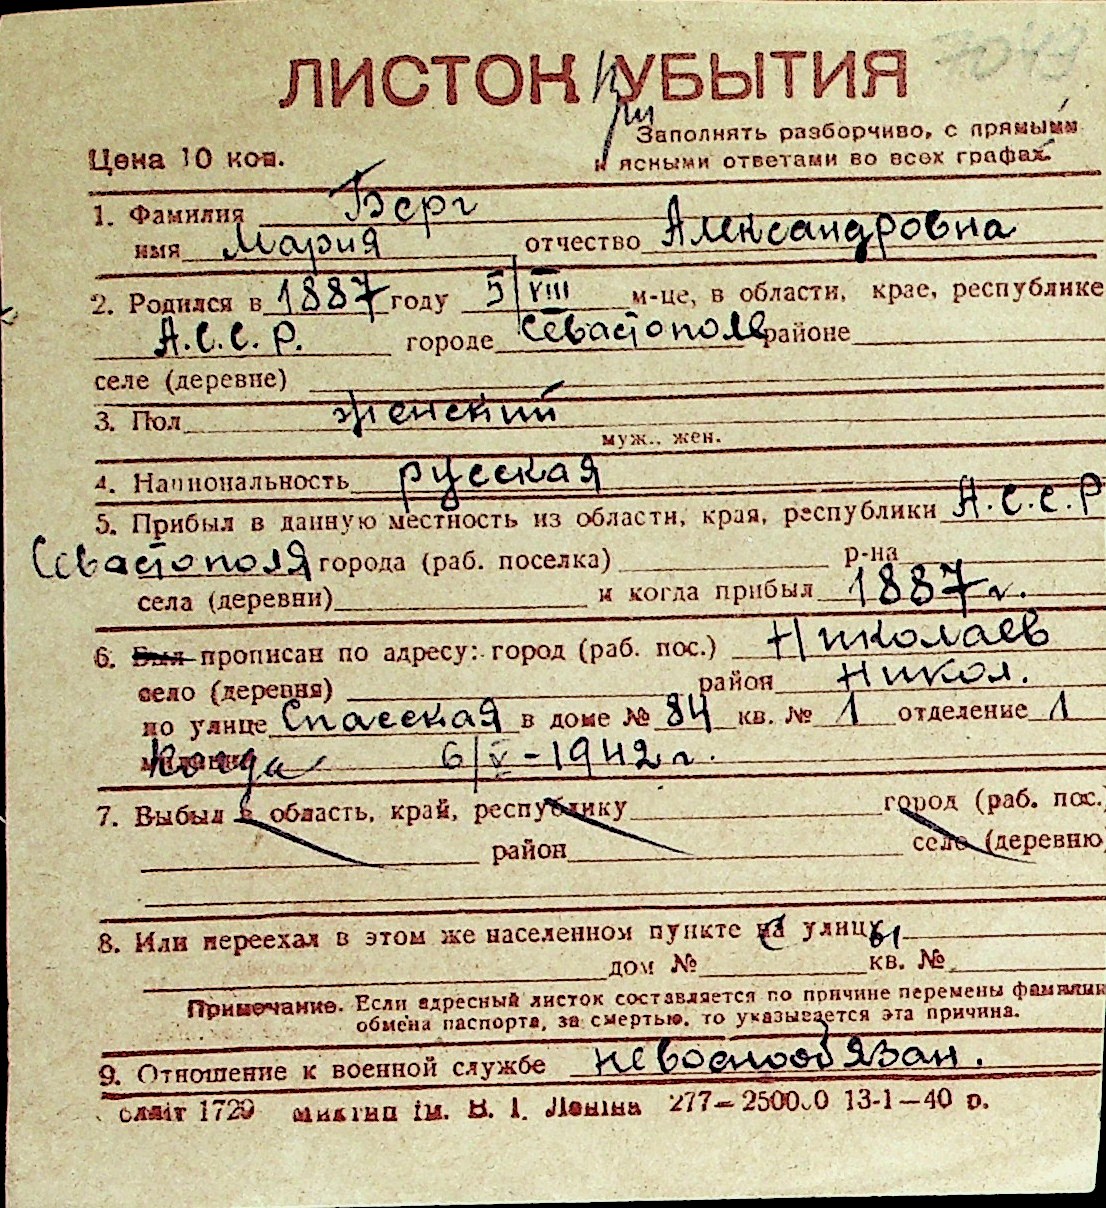 7049
ЛИСТОК УБЫТИЯ
при
Заполнять разборчиво, с прямыми
Цена 10 коп.
и ясными ответами во всех графах.
1. Фамилия Берг
имя Мария отчество Александровна
2. Родился в 1887 году 5/VIII м-це, в области, крае, республике
А.С.С.Р. городе Севастополе районе
селе (деревне)
3. Пол женский
муж., жен.
4. Национальность русская
5. Прибыл в данную местность из области, края, республики А.С.С.Р
Севастополя города (раб. поселка) р-на
села (деревни) и когда прибыл 1887 г.
6. Был прописан по адресу: город (раб. пос.) Николаев
село (деревня) район Никол.
по улице Спасская в доме № 84 кв. № 1 отделение 1
когда 6/V-1942 г.
7. Выбыл в область, край, республику город (раб. пос.)
район село (деревню
8. Или переехал в этом же населенном пункте с улицы
дом № кв. №
Примечание. Если адресный листок составляется по причине перемены фамилии
обмена паспорта, за смертью, то указывается эта причина.
9. Отношение к военной службе невоенообязан.
1729 ім. В. І. Леніна 277— 13-1—40 р.